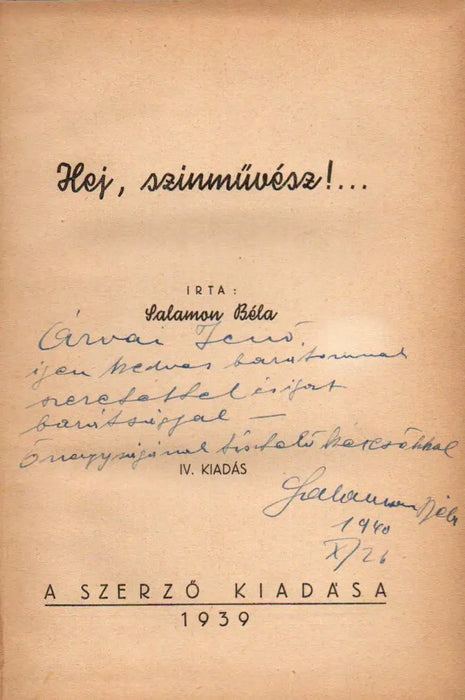 Hej, szinművész!...
IRTA:
Salamon Béla
Árvai Jenő
igen kedves barátomnak
szeretettel és igaz
barátsággal —
Őnagyságának tisztelő kézcsókkal
IV. KIADÁS
Salamon Béla
1940
X/26
A SZERZŐ KIADÁSA
1939